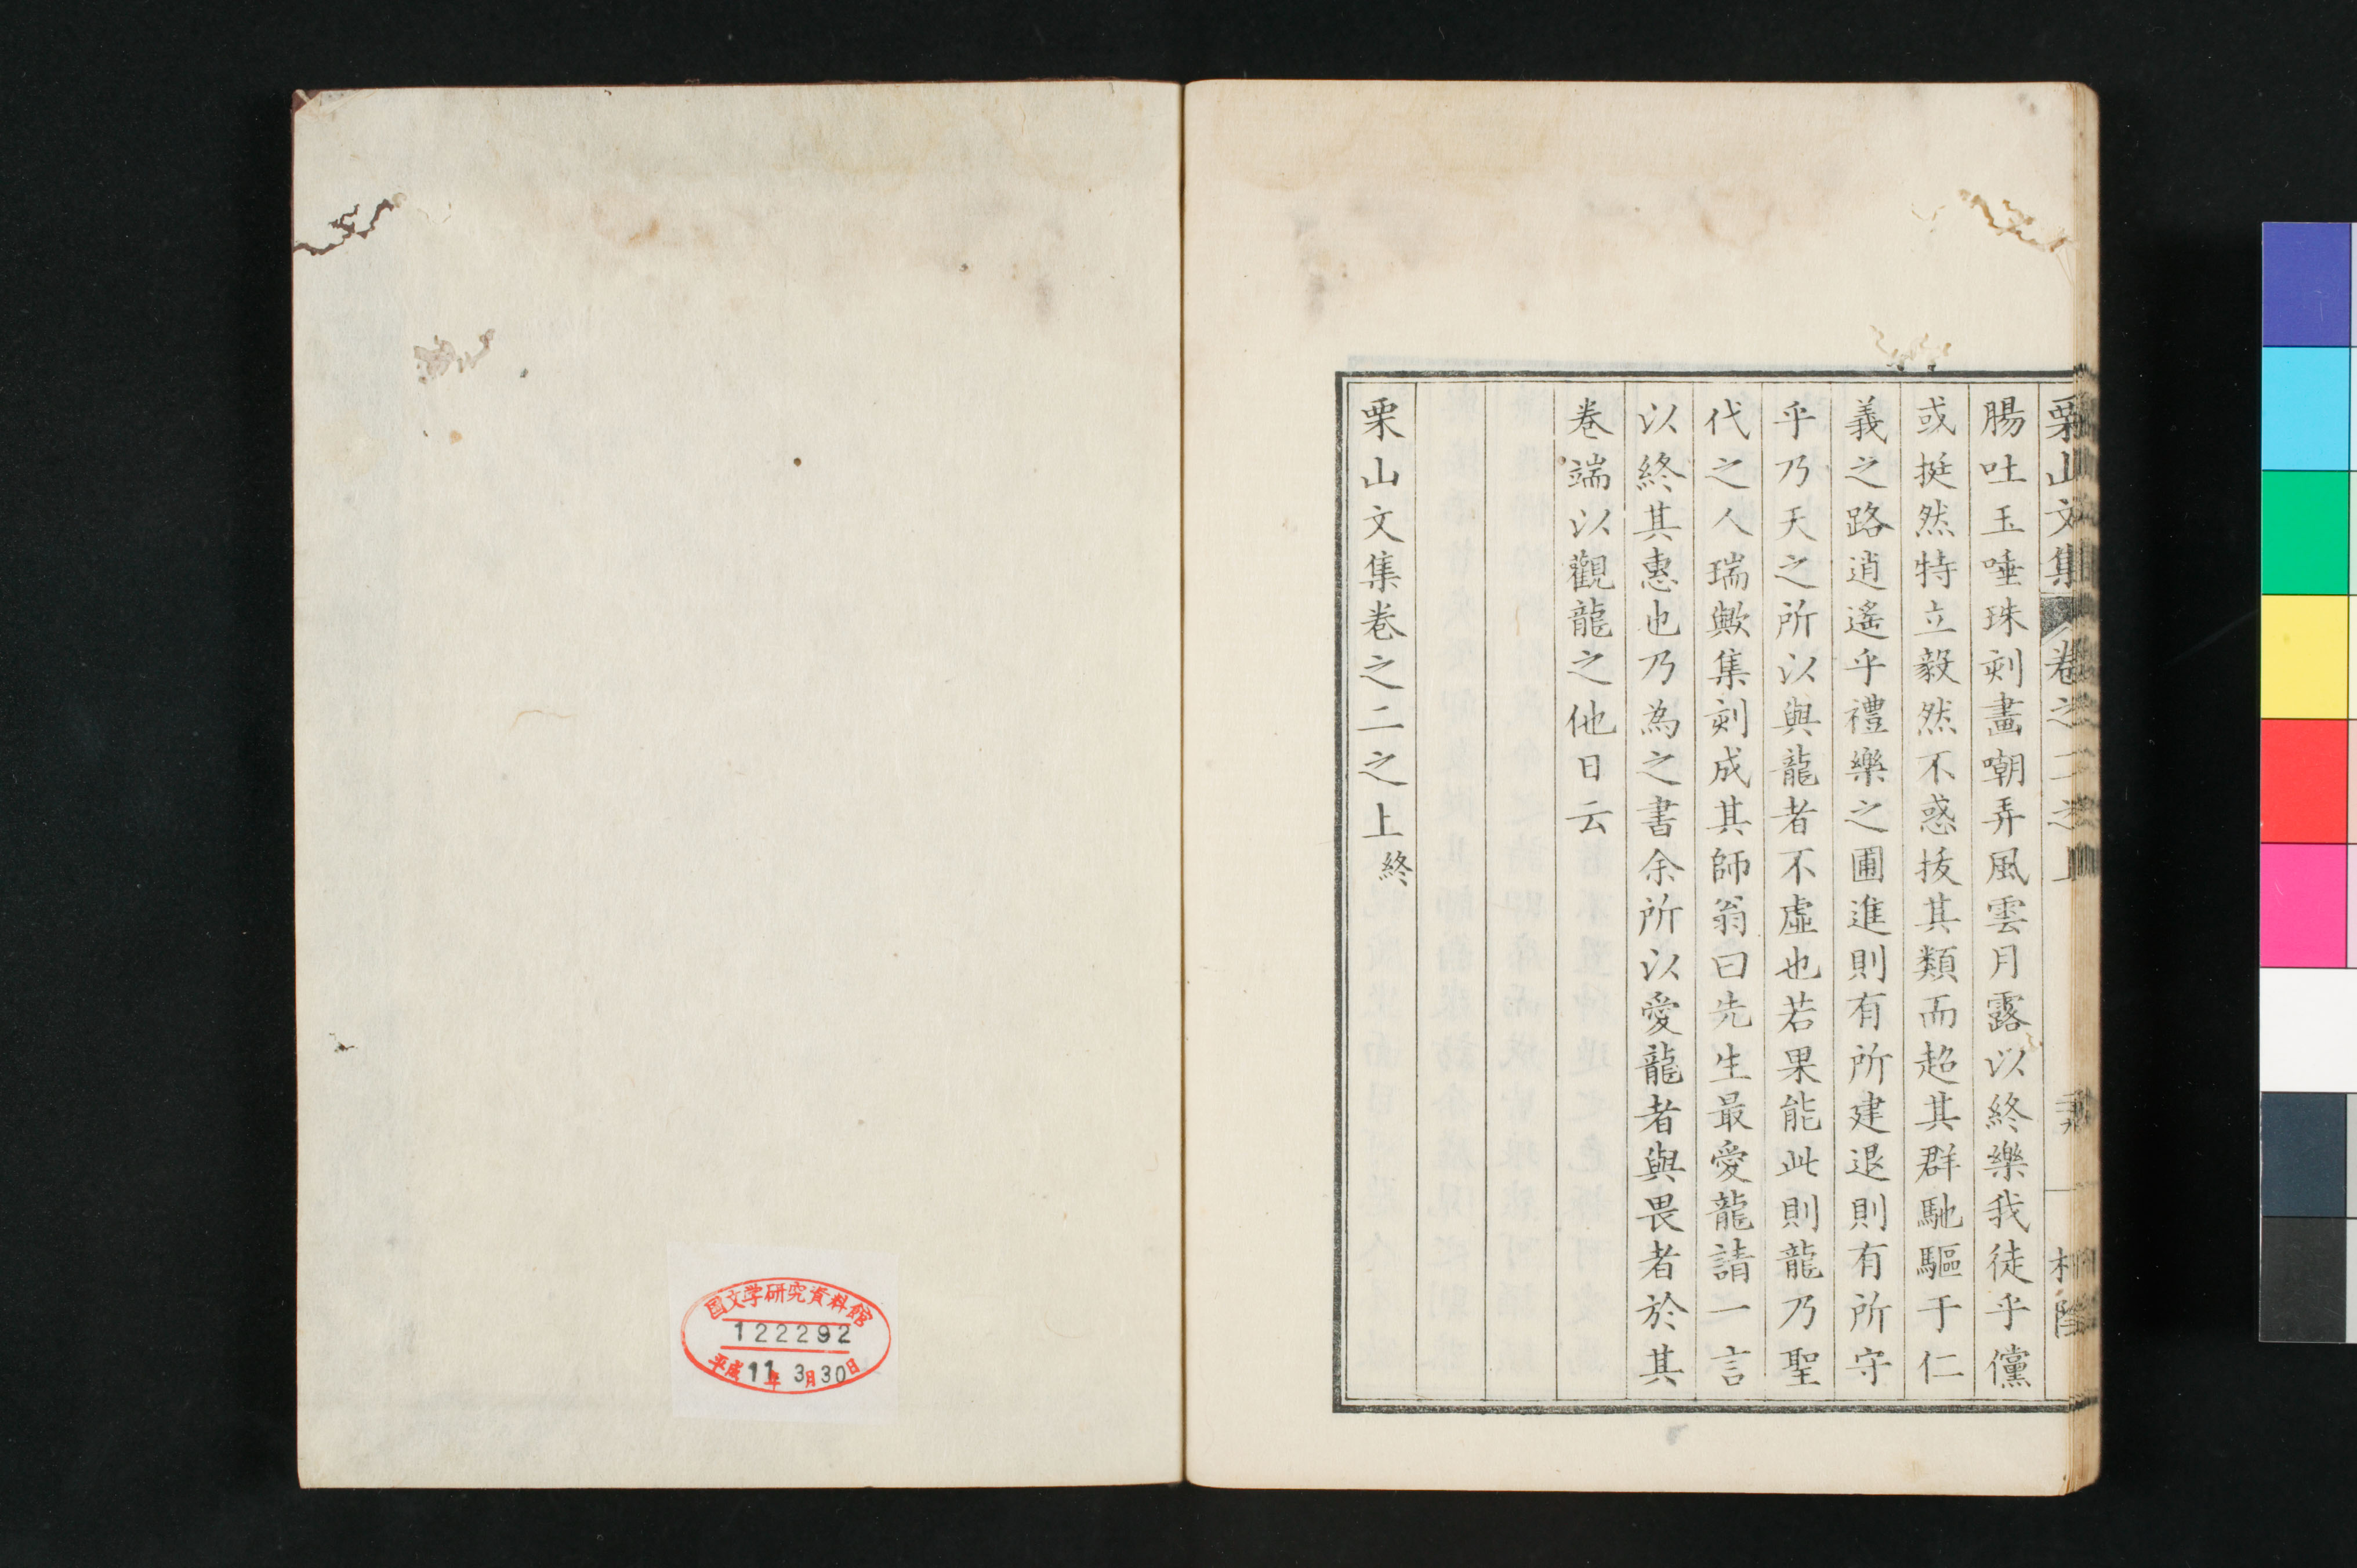 栗山文集 卷之二之上
腸吐玉唾珠刻畫嘲弄風雲月露以終樂我徒乎儻
或挺然特立毅然不惑拔其類而超其群馳驅于仁
義之路逍遙乎禮樂之圃進則有所建退則有所守
乎乃天之所以與龍者不虛也若果能此則龍乃聖
代之人瑞歟集刻成其師翁曰先生最愛龍請一言
以終其惠也乃為之書余所以愛龍者與畏者於其
卷端以觀龍之他日云
栗山文集卷之二之上終
国文学研究資料館
122292
平成11年3月30日